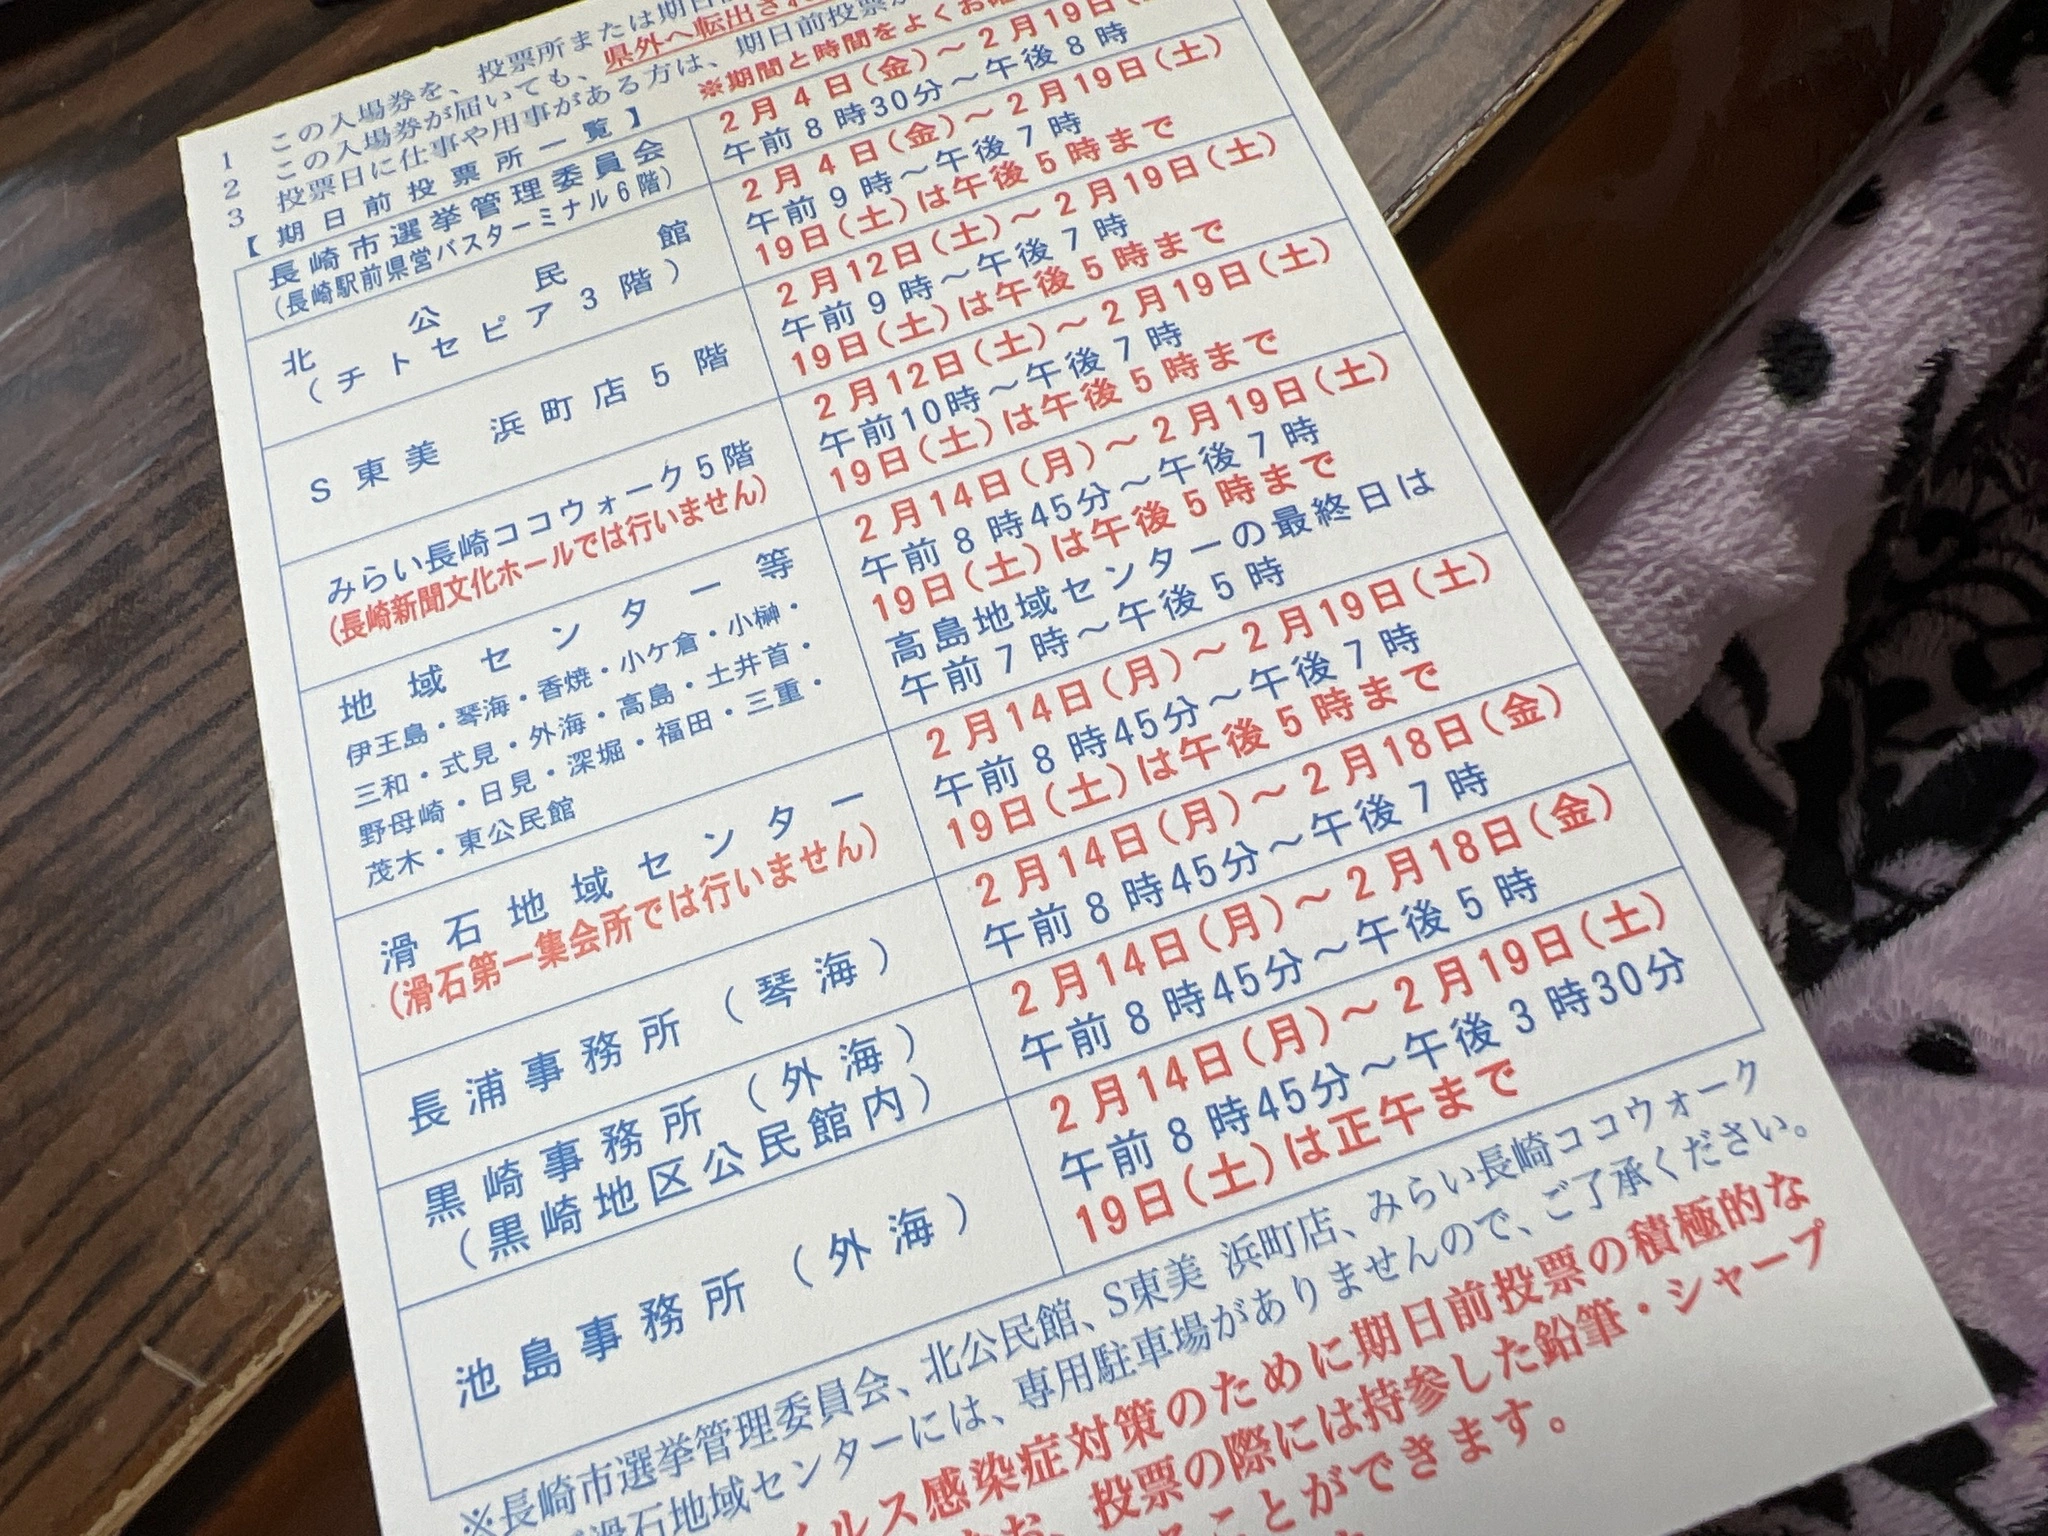 1 この入場券を、投票所または期日
2 この入場券が届いても、県外へ転出され
3 投票日に仕事や用事がある方は、期日前投票が
【期日前投票所一覧】 ※期間と時間をよくお
長崎市選挙管理委員会
(長崎駅前県営バスターミナル6階)
2月4日(金)～2月19日(
午前8時30分～午後8時
北公民館
(チトセピア3階)
2月4日(金)～2月19日(土)
午前9時～午後7時
19日(土)は午後5時まで
S東美 浜町店5階
2月12日(土)～2月19日(土)
午前9時～午後7時
19日(土)は午後5時まで
みらい長崎ココウォーク5階
(長崎新聞文化ホールでは行いません)
2月12日(土)～2月19日(土)
午前10時～午後7時
19日(土)は午後5時まで
地域センター等
伊王島・琴海・香焼・小ケ倉・小榊・
三和・式見・外海・高島・土井首・
野母崎・日見・深堀・福田・三重・
茂木・東公民館
2月14日(月)～2月19日(土)
午前8時45分～午後7時
19日(土)は午後5時まで
高島地域センターの最終日は
午前7時～午後5時
滑石地域センター
(滑石第一集会所では行いません)
2月14日(月)～2月19日(土)
午前8時45分～午後7時
19日(土)は午後5時まで
長浦事務所(琴海)
2月14日(月)～2月18日(金)
午前8時45分～午後7時
黒崎事務所(外海)
(黒崎地区公民館内)
2月14日(月)～2月18日(金)
午前8時45分～午後5時
池島事務所(外海)
2月14日(月)～2月19日(土)
午前8時45分～午後3時30分
19日(土)は正午まで
※長崎市選挙管理委員会、北公民館、S東美 浜町店、みらい長崎ココウォーク
滑石地域センターには、専用駐車場がありませんので、ご了承ください。
イルス感染症対策のために期日前投票の積極的な
お、投票の際には持参した鉛筆・シャープ
ることができます。